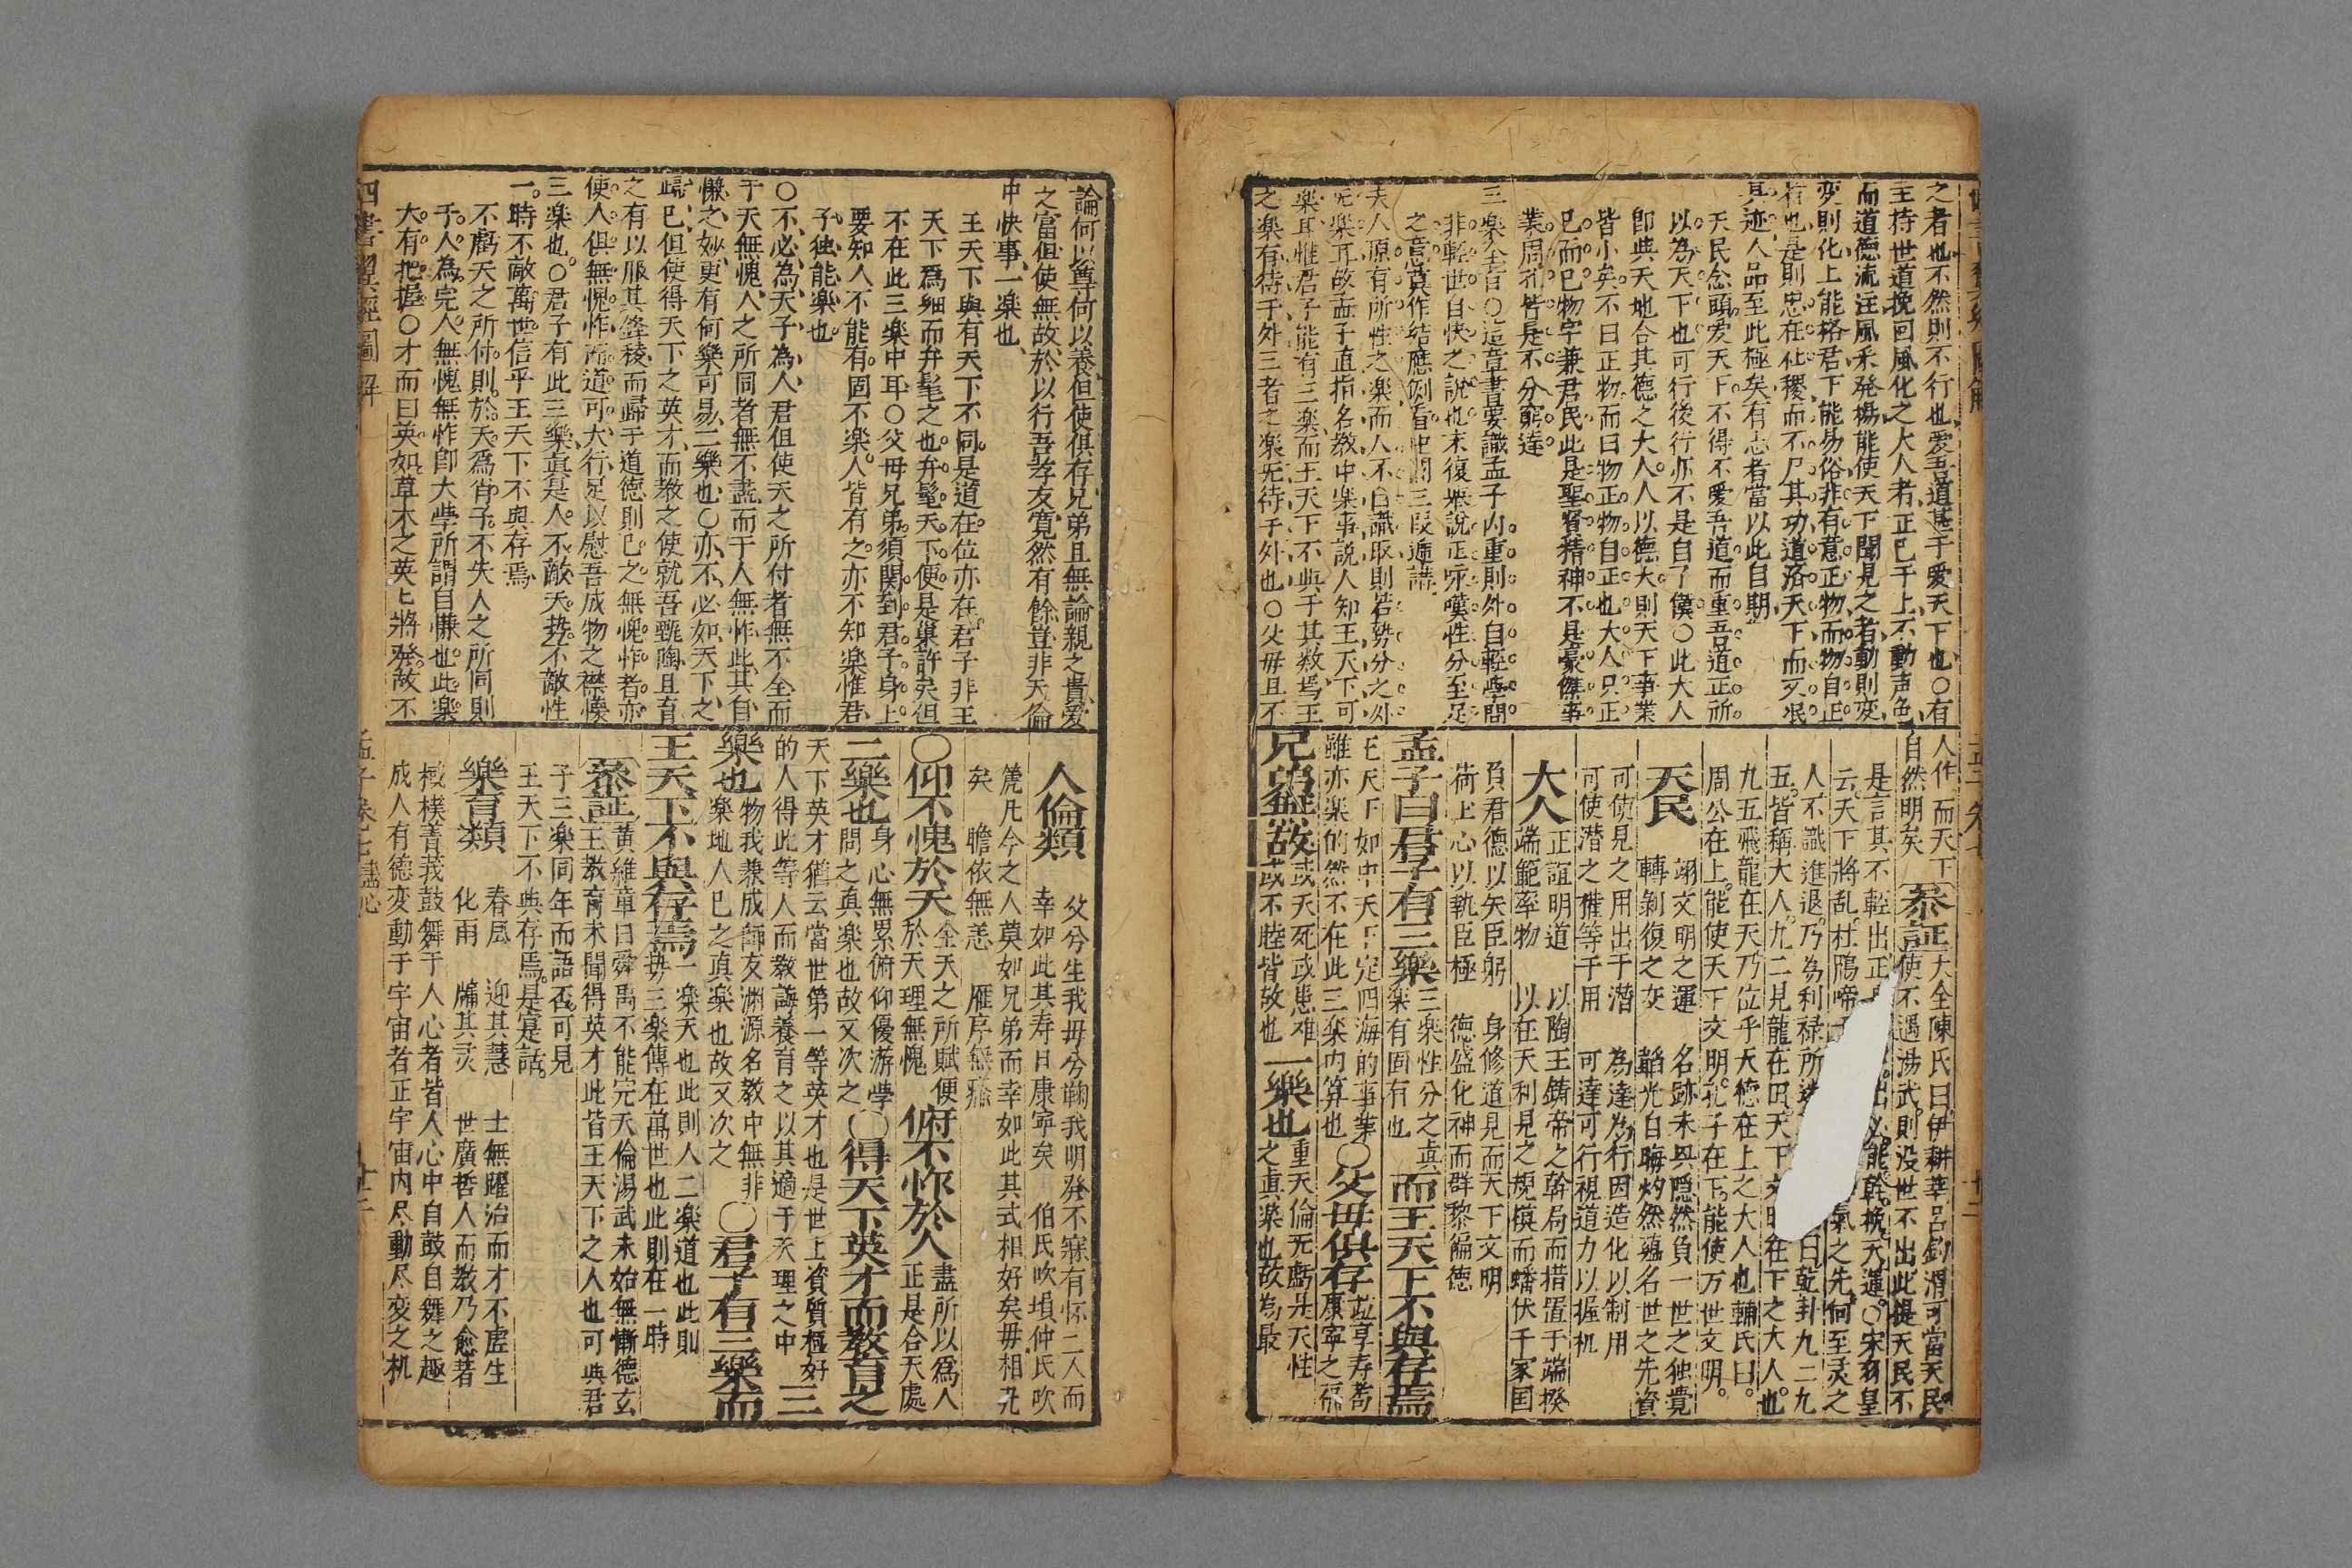 之者也不然則不行也爱吾道甚于爱天下也○有
主持世道挽回風化之大人者正已于上不動声色
而道德流注風采発揚能使天下聞見之者動則变
变則化上能格君下能易俗非有意正物而物自正
有也是則忠在社稷而不尸其功道洛天下而天泯
其迹人品至此極矣有志者當以此自期
天民念頭爱天下不得不爱吾道而重吾道正所
以為天下也可行後行亦不是自了僕○此大人
即與天地合其德之大人人以德大則天下事業
皆小矣不曰正物而曰物正物自正也大人只正
已而已物字兼君民此是聖賢精神不是豪傑事
業周孔皆是不分窮達
三楽全旨○這章書要識孟子內重則外自輕些問
非輕世自快之説也末復楽説正咏嘆性分至足
之意莫作結應例看中間三段逓講
夫人原有所性之楽而人不自識取則若勢分之外
无楽耳故孟子直指名教中楽事説人知王天下可
楽耳惟君子能有三楽而王天下不與于其数焉王
之楽有待于外三者之楽无待于外也○父母且不
人作而天下
自然明矣 叅証 大全陳氏曰伊耕莘呂釣渭可當天民
使不遇湯武則没世不出此提天民不
是言其不輕出正
出必能幹挽天運○宋邵皇
云天下將乱杜鵑啼
氣之先何至灵之
人不識進退乃為利禄所
曰乾卦九二九
五皆稱大人九二見龍在田天下文明在下之大人也
九五飛龍在天乃位乎大德在上之大人也輔氏曰
周公在上能使天下文明孔子在下能使万世文明
天民 翊文明之運 名跡未與隠然負一世之独覺
轉剝復之交 韜光自晦灼然蘊名世之先資
可使見之用出于潜 為達為行因造化以制用
可使潜之権等于用 可達可行視道力以握机
大人 正誼明道 以陶王鋳帝之幹局而措置于端揆
端範率物 以在天利見之規模而蟠伏于家国
負君德以矢臣躬 身修道見而天下文明
荷上心以執臣極 德盛化神而群黎徧德
孟子曰君子有三樂 三楽性分之真
楽有固有也 而王天下不與存焉
王天下如中天下定四海的事業
雖亦楽的然不在此三楽內算也 ○父母俱存 並享寿耇
康寧之福
兄弟無故 或天死或患难
或不睦皆故也 一樂也 重天倫无虧是天性
之真楽也故為最
論何以尊何以養但使俱存兄弟且無論親之貴爱
之富但使無故於以行吾孝友寛然有餘豈非天倫
中快事一楽也
王天下與有天下不同是道在位亦在君子非王
天下爲細而弁髦之也弁髦天下便是巢許矣但
不在此三楽中耳○父母兄弟須関到君子身上
要知人不能有固不楽人皆有之亦不知楽惟君
子独能楽也
○不必為天子為人君但使天之所付者無不全而
于天無愧人之所同者無不盡而于人無怍此其自
慊之妙更有何樂可易二樂也○亦不必如天下之
歸已但使得天下之英才而教之使就吾甄陶且育
之有以服其盛稜而歸于道德則已之無愧怍者亦
使人俱無愧怍而道可大行足以慰吾成物之襟懐
三楽也○君子有此三樂真是人不敵天勢不敵性
一時不敵萬世信乎王天下不與存焉
不虧天之所付則於天爲肖子不失人之所同則
于人為完人無愧無怍即大學所謂自慊也此楽
大有把握○才而曰英如草木之英已將発故不
四書翼經圖解
人倫類 父兮生我母兮鞠我明発不寐有怀二人而
幸如此其寿日康寧矣 伯氏吹塤仲氏吹
篪凡今之人莫如兄弟而幸如此其式相好矣毋相尤
矣 瞻依無恙 雁序無恙
○仰不愧於天 全天之所賦便
於天理無愧 俯不怍於人 盡所以爲人
正是合天處
二樂也 身心無累俯仰優游學
問之真楽也故又次之 ○得天下英才而教育之
天下英才猶云當世第一等英才也是世上資質極好
的人得此等人而教誨養育之以其適于天理之中 三
樂也 物我兼成師友淵源名教中無非
楽地人已之真楽也故又次之 ○君子有三樂而
王天下不與存焉 一楽天也此則人二楽道也此則
勢三楽傳在萬世也此則在一時
叅証 黃維章曰舜禹不能完天倫湯武未始無慚德玄
王教育未聞得英才此皆王天下之人也可與君
子三楽同年而語否可見
王天下不與存焉是寔話
樂育類 春風 迎其慧 士無躍治而才不虚生
化雨 牖其灵 世廣哲人而教乃愈著
棫樸菁莪鼓舞于人心者皆人心中自鼓自舞之趣
成人有德変動于宇宙者正宇宙内尽動尽変之机
孟子卷七 盡心